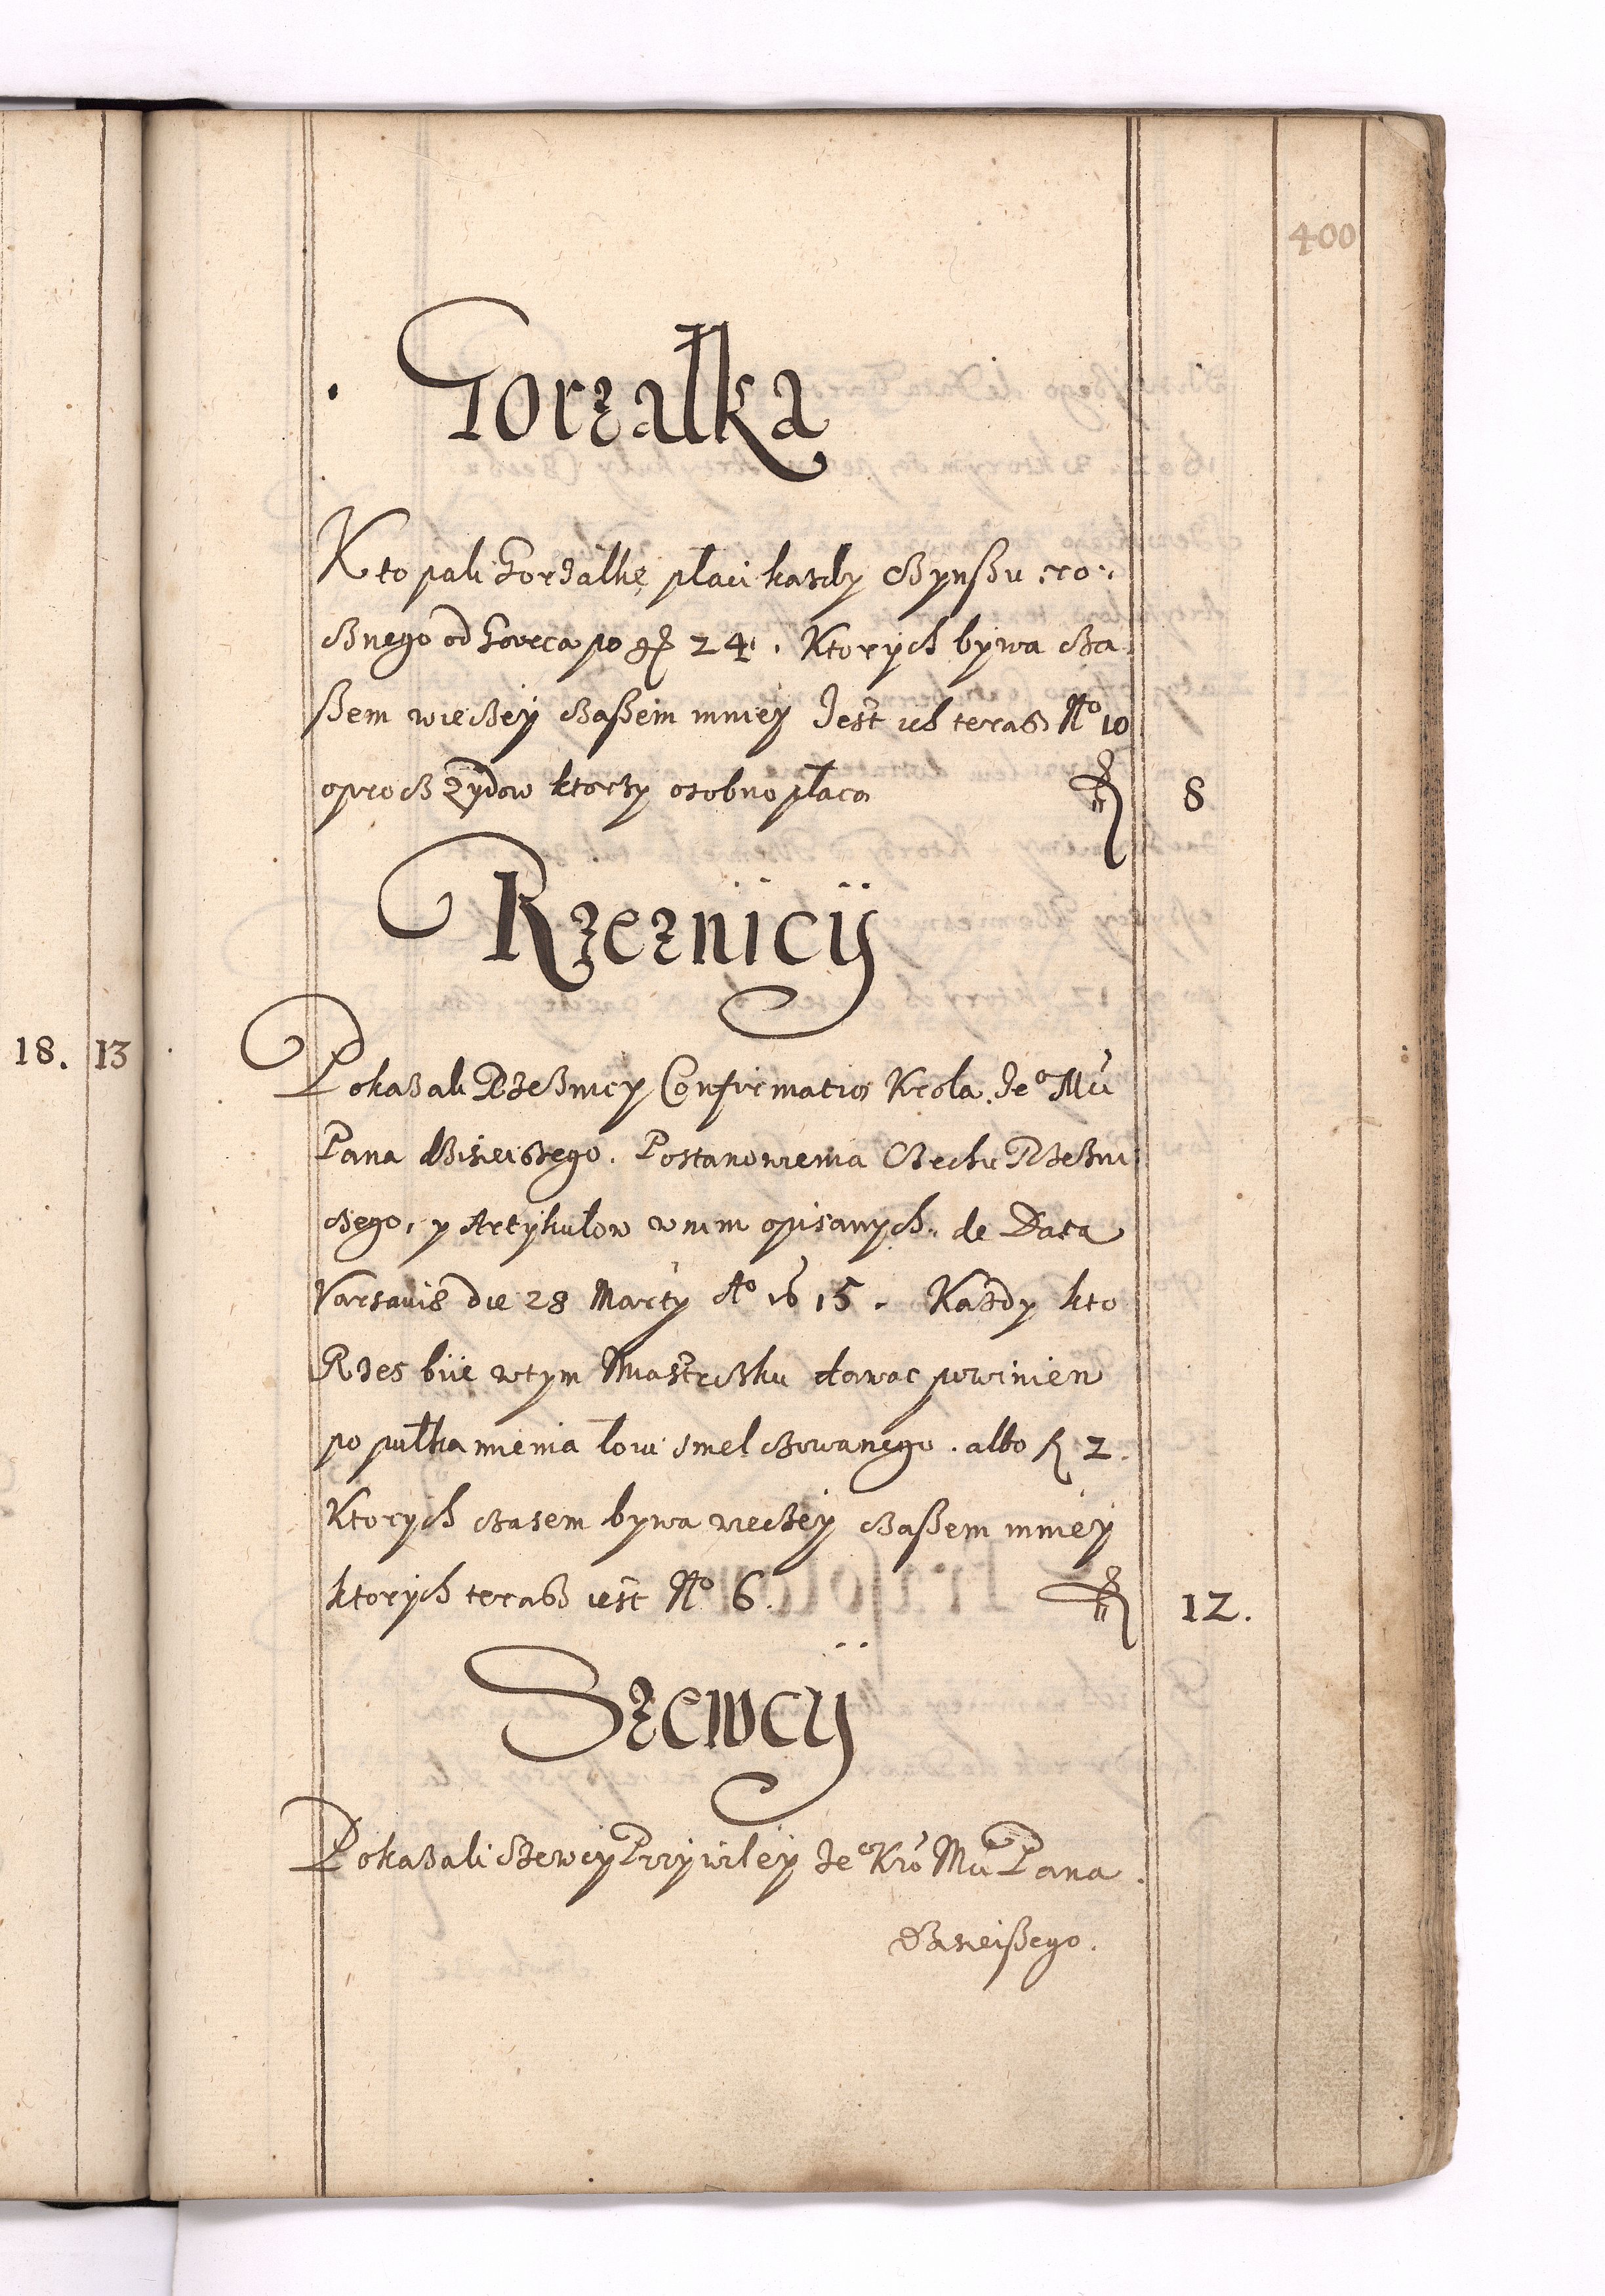 400
Gorzałka
Kto pali Gorzałkę płaci kazdy Czynszu ro-
cznego od Garca po gr 24. Ktorych bywa cza
szem wieczey czaszem mniey Jest ich terasz No 10
oprocz Zydow ktorzy osobno płacą fl 8
Rzeznicy
18. 13
Pokazali Rzeznicy Confirmatią Krola Jeo Mci
Pana dzisieiszego. Postanowienia Czechu Rzezni
czego, y Artykułow w nim opisanych. de Data
Varsaviae die 28 Marty Ao 1615. Kazdy kto
Rzes biie w tym Miasteczku dawac powinien
po pułkamienia łoiu smelczowanego. albo fl 2.
Ktorych czasem bywa wieczey czaszem mniey
ktorych terasz iest No 6. fl 12.
Szewcy
Pokazali Szewcy Przywiley Jeo Kro Mci Pana
dzisieiszego.